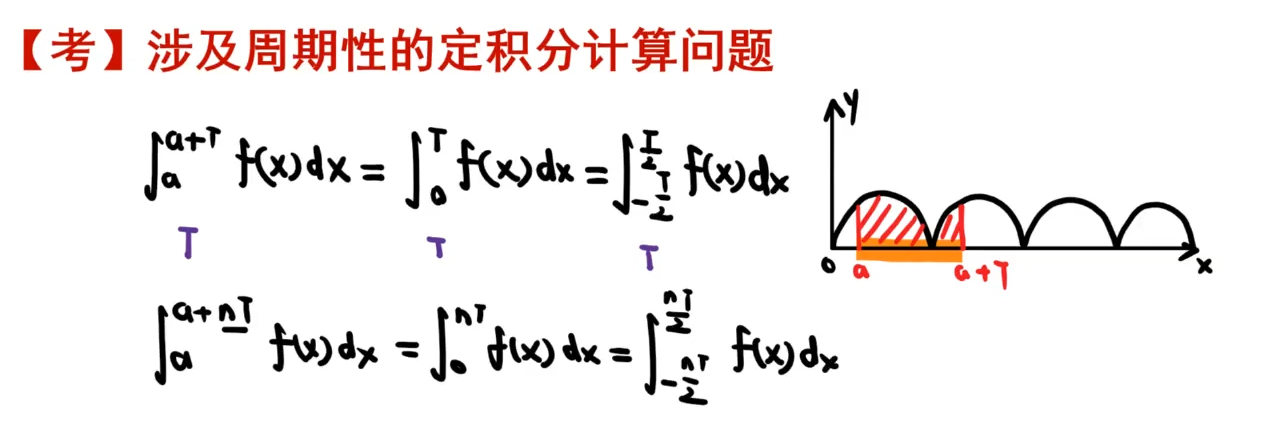 【考】涉及周期性的定积分计算问题
∫_a^{a+T} f(x)dx = ∫_0^T f(x)dx = ∫_{-T/2}^{T/2} f(x)dx
T T T
∫_a^{a+nT} f(x)dx = ∫_0^{nT} f(x)dx = ∫_{-nT/2}^{nT/2} f(x)dx
y
0 a a+T x